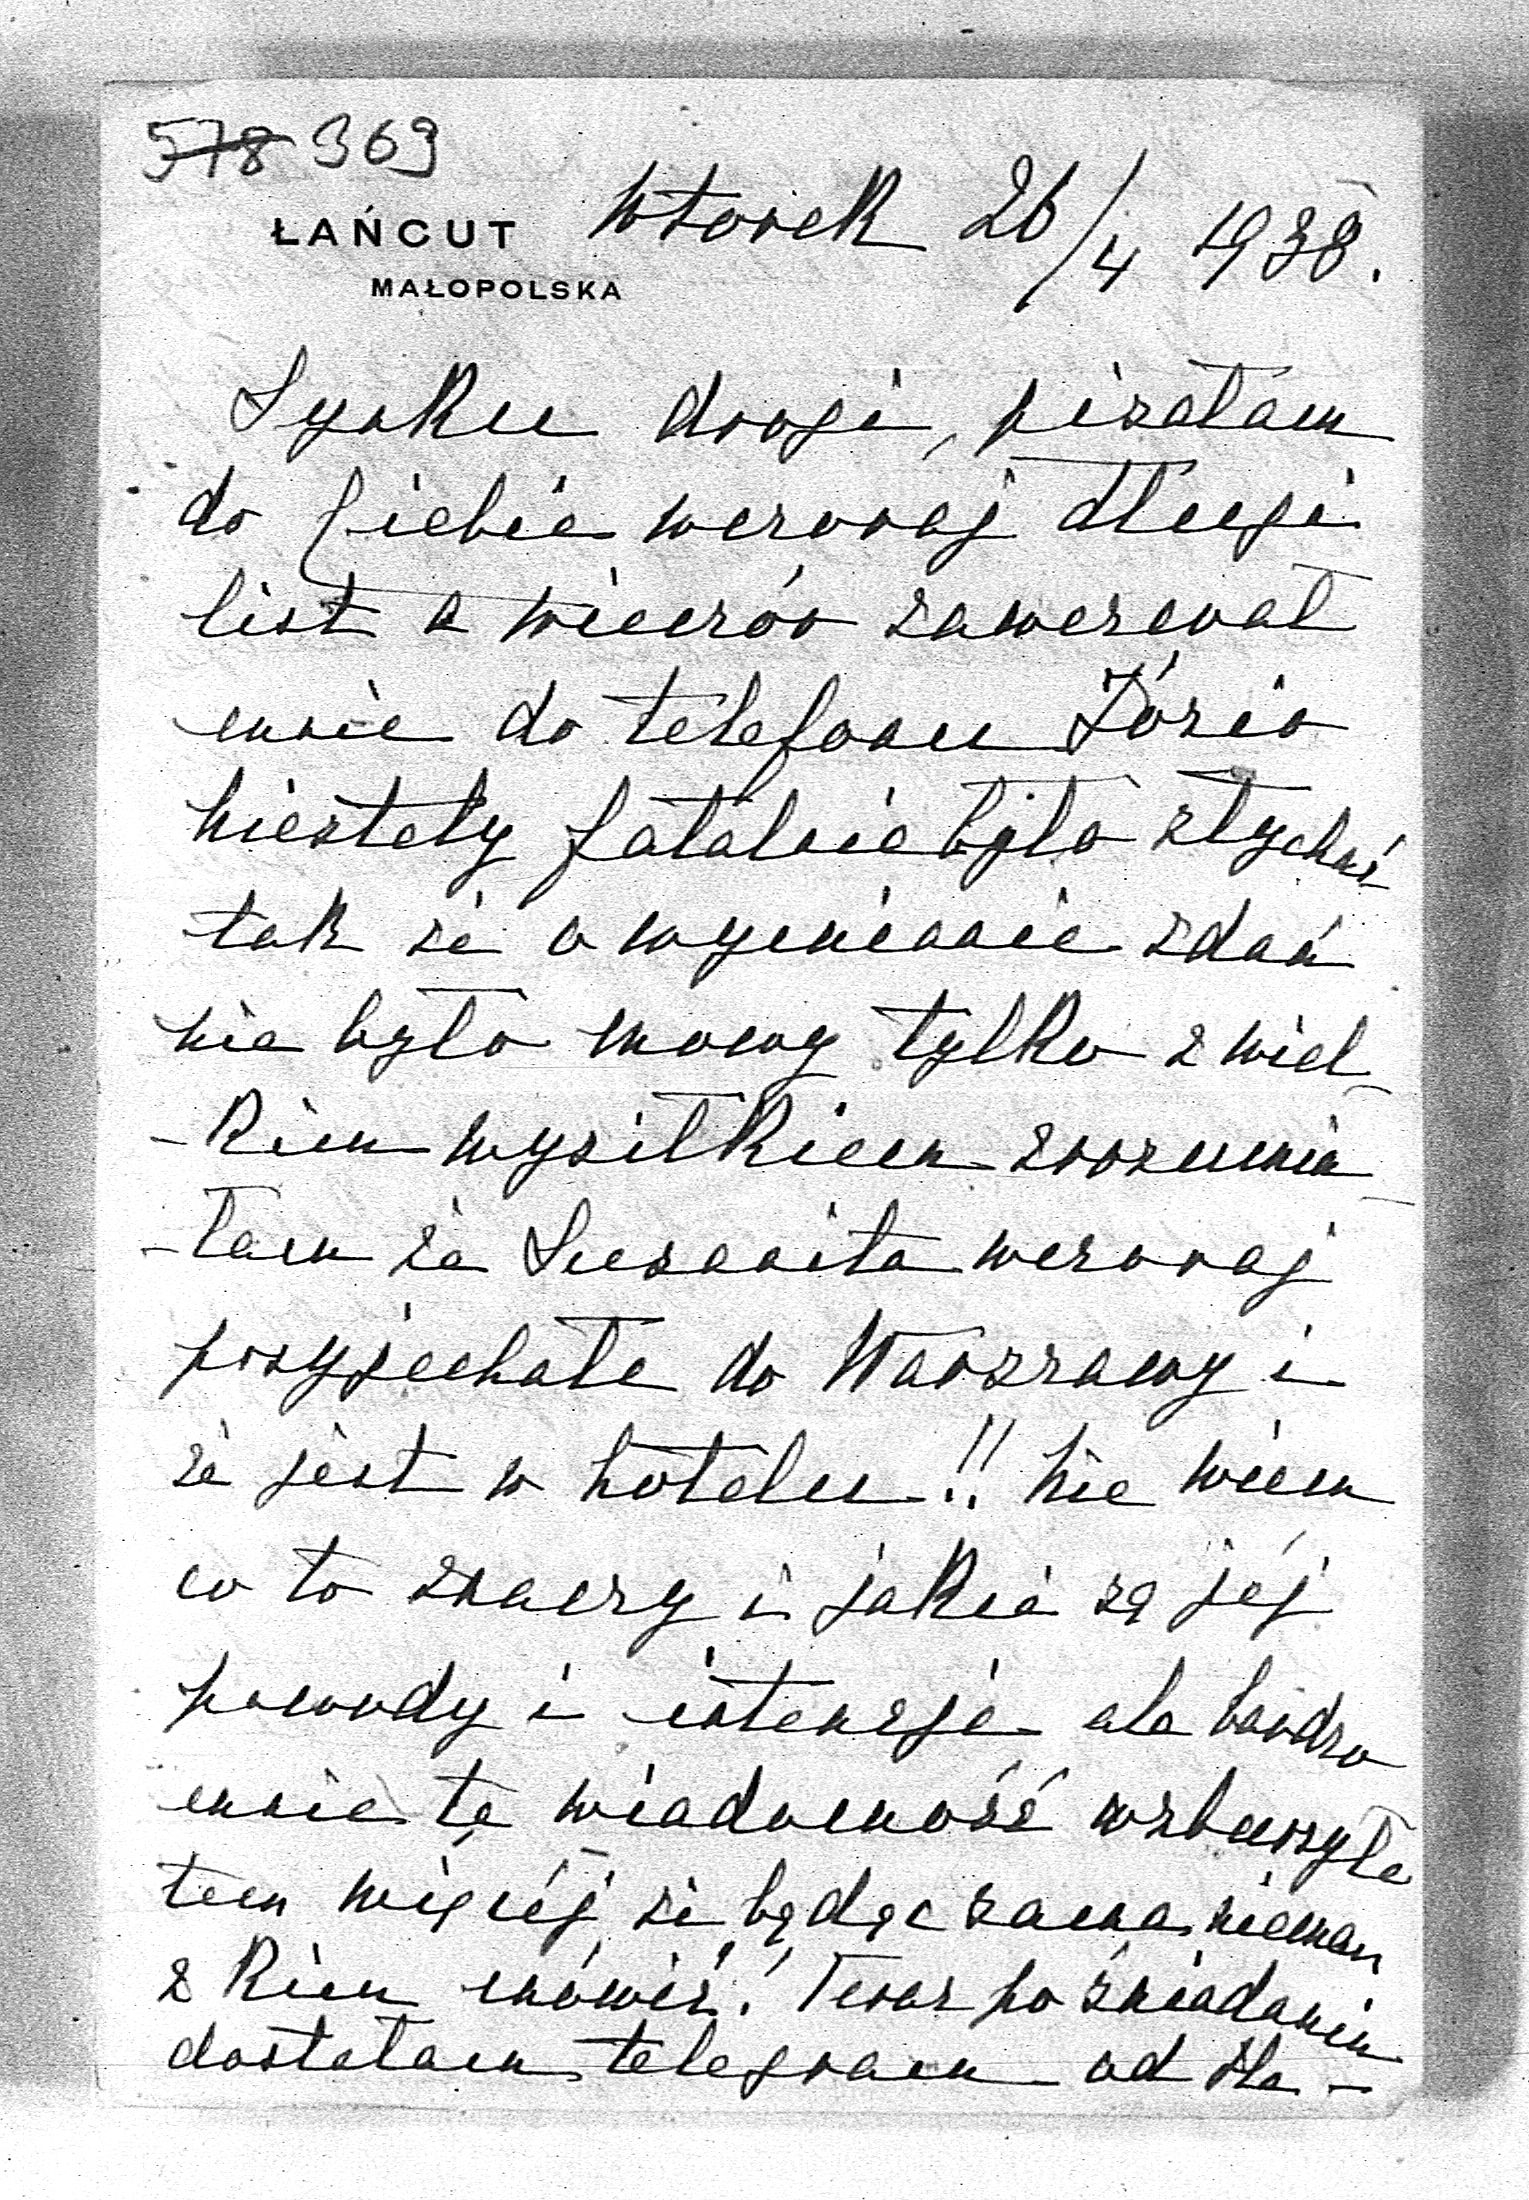 578 369
ŁAŃCUT wtorek 26/4 1938.
MAŁOPOLSKA
Synku drogi, pisałam
do Ciebie wczoraj długi
list a wieczór zawezwał
mnie do telefonu Józio
niestety fatalnie było słychać
tak że o wymianie zdań
nie było mowy tylko z wiel
-kiem wysiłkiem zrozumia
-łam że Suzanita wczoraj
przyjechała do Warszawy i
że jest w hotelu!! Nie wiem
co to znaczy i jakie są jéj
powody i intencje ale bardzo
mnie ta wiadomość wzburzyła
tem więcéj że będąc sama niemam
z kiem mówić! Teraz po śniadaniu
dostałam telegram od